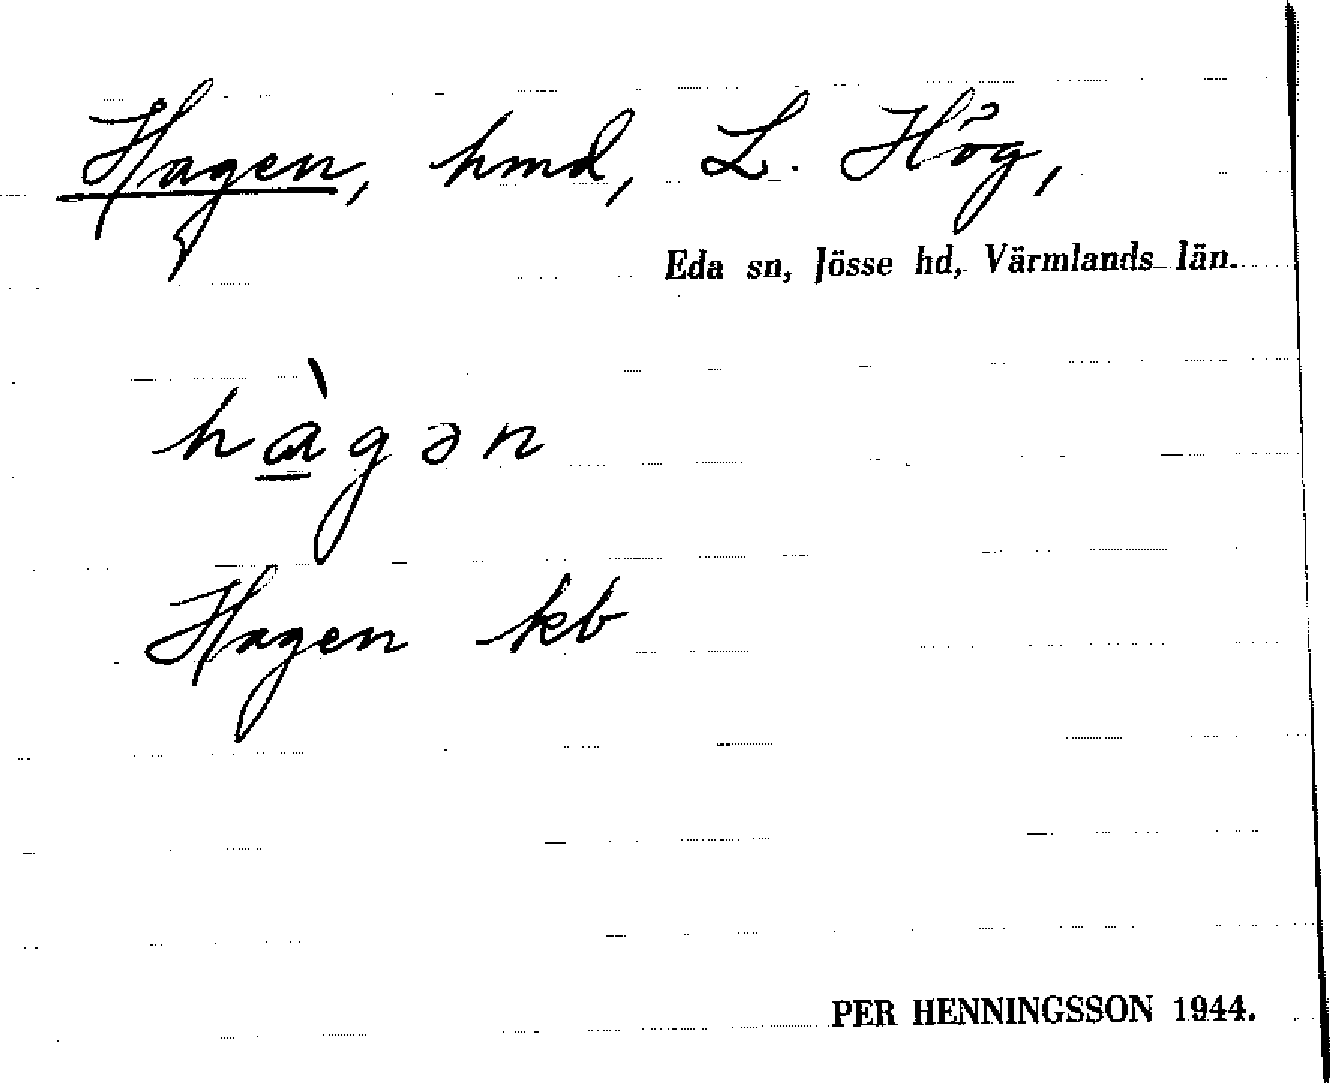 Hagen, hmd, L. Hög,
Eda sn, Jösse hd, Värmlands län.
hàgən
Hagen kb
PER HENNINGSSON 1944.